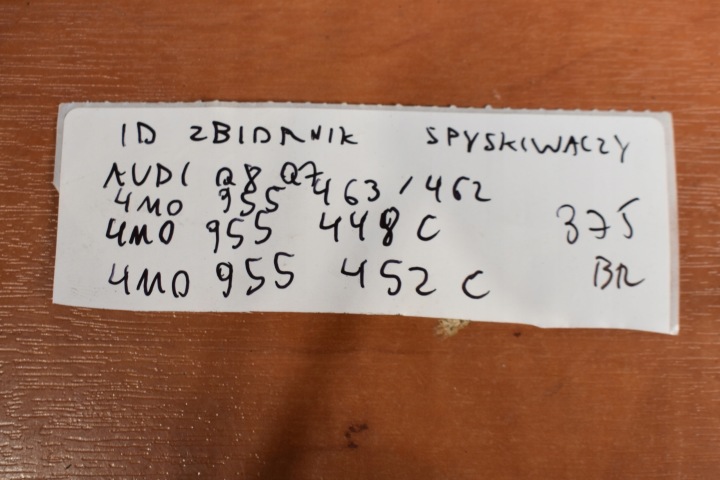 ID ZBIDRNIK SPYSKIWACZY
AUDI Q8 Q7
4M0 955 463 / 462
4M0 955 448 C 375
4M0 955 452 C BR